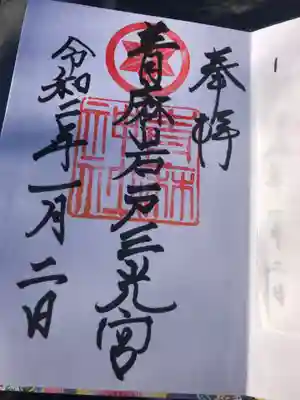 奉拝
青麻岩戸三光宮
令和二年一月二日